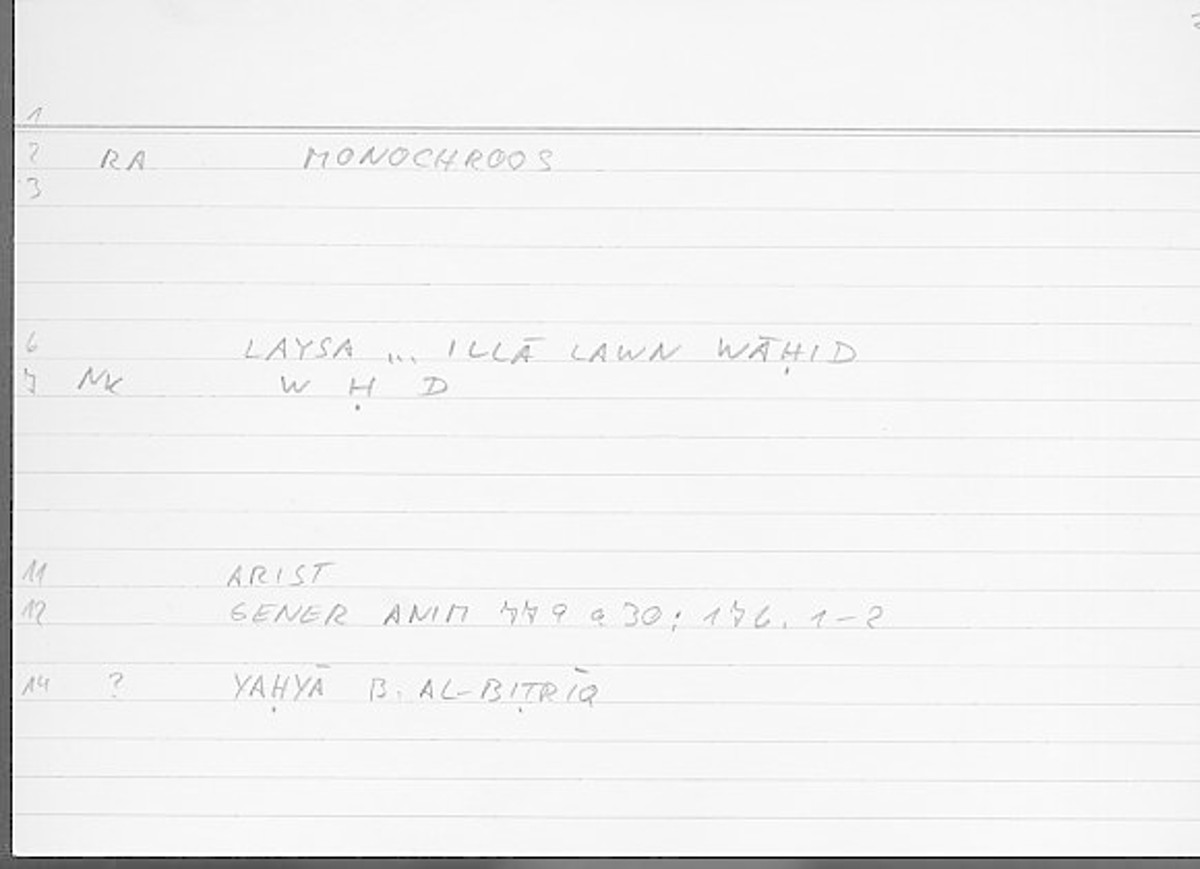 1
2 RA MONOCHROOS
3
6 LAYSA ... ILLĀ LAWN WĀḤID
7 NK W Ḥ D
11 ARIST
12 GENER ANIM 779 a 30; 176. 1-2
14 ? YAḤYĀ B. AL-BIṬRĪQ